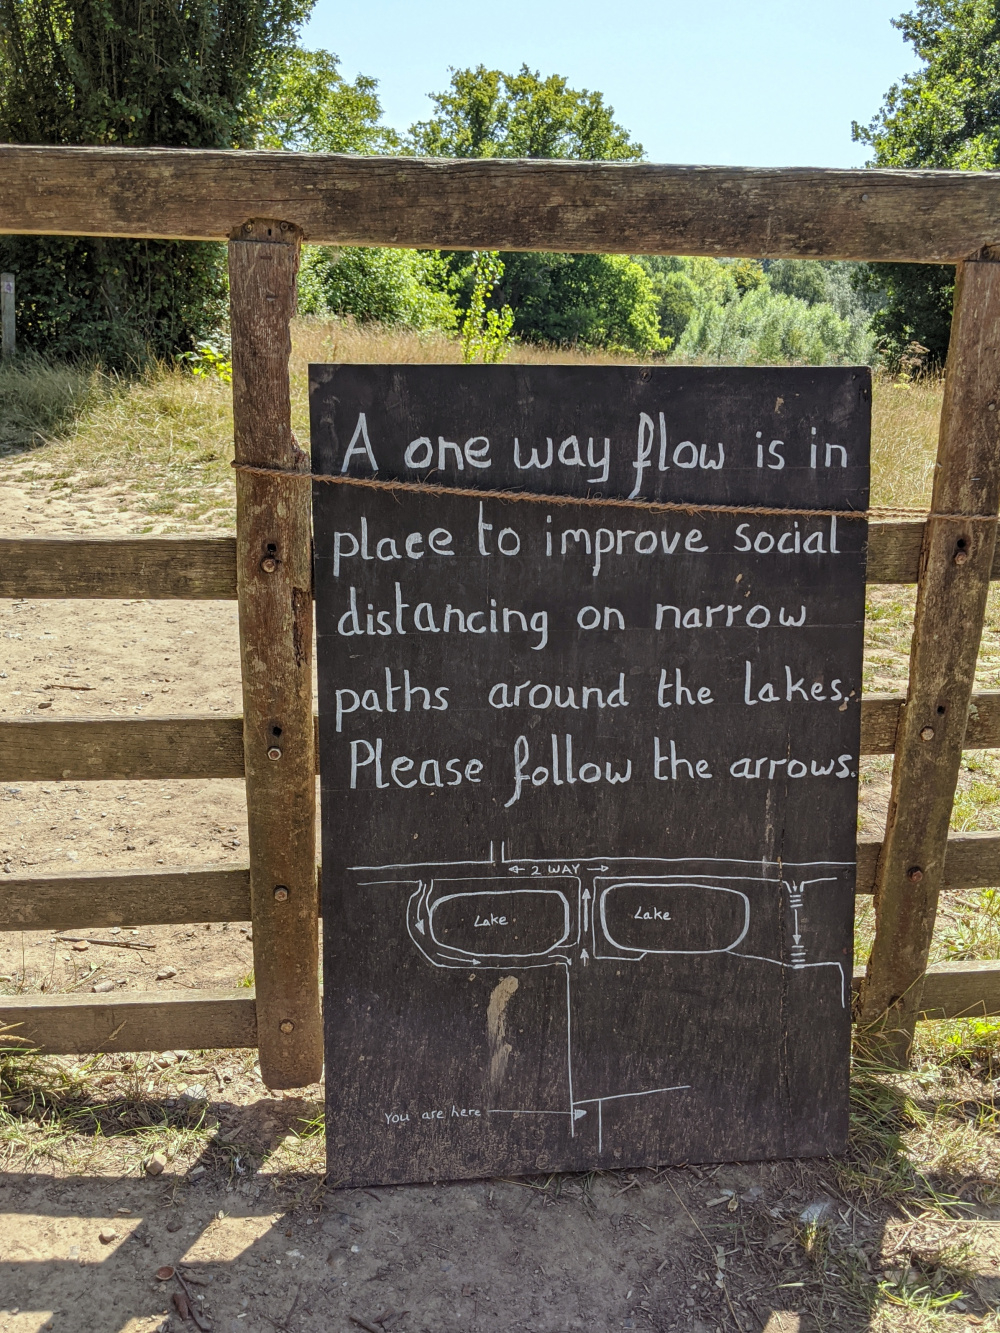 A one way flow is in
place to improve social
distancing on narrow
paths around the lakes.
Please follow the arrows.
2 WAY
Lake
Lake
You are here